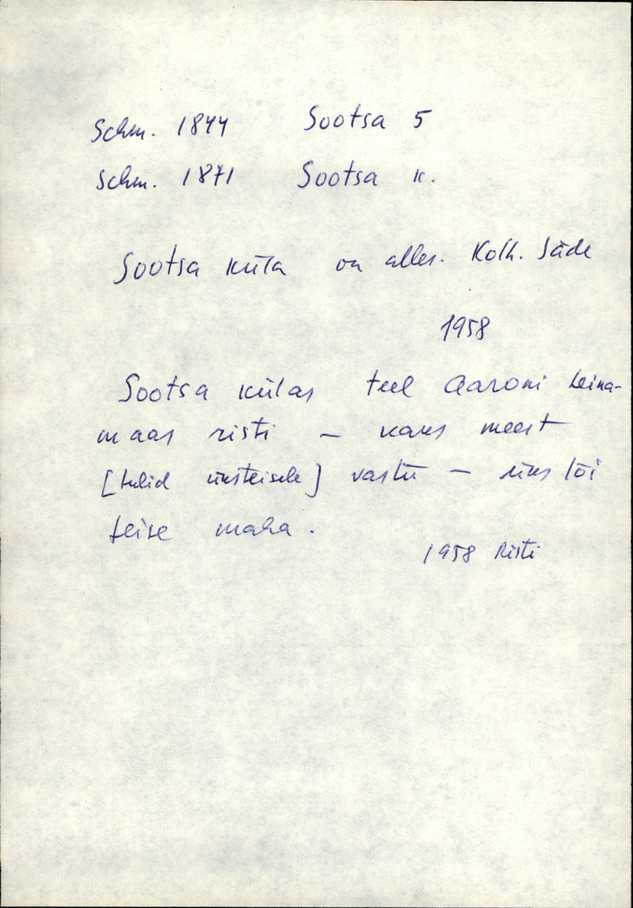 Schm. 1844 Sootsa 5
Schm. 1871 Sootsa k.
Sootsa küla on alles. Kolh. Säde
1958
Sootsa külas teel Aaroni heina-
maas risti – kaks meest
[tulid üksteisele] vastu – üks lõi
teise maha.
1958 Risti